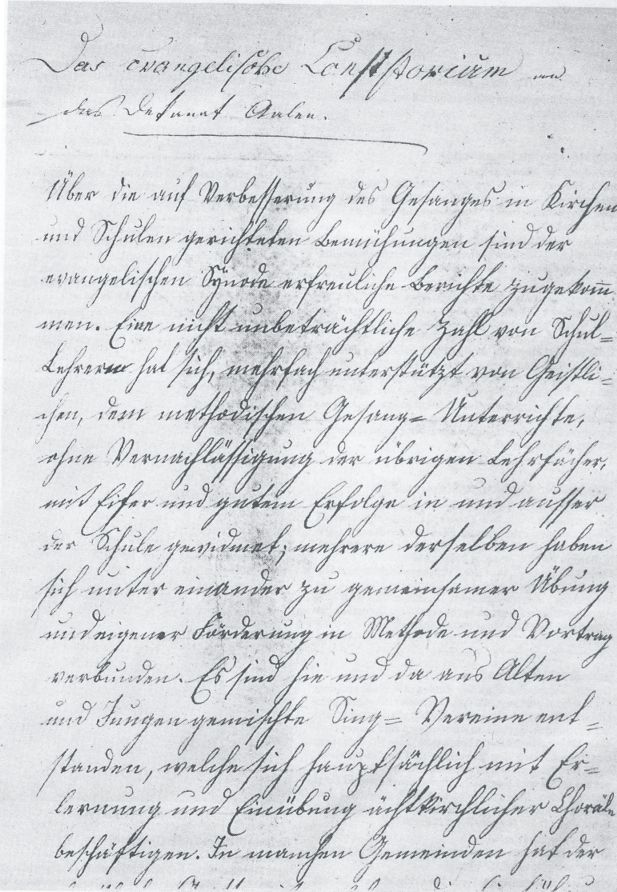 Das evangelische Consistorium an
das Dekanat Aalen.
Über die auf Verbesserung des Gesanges in Kirchen
und Schulen gerichteten Bemühungen sind der
evangelischen Synode erfreuliche Berichte zugekom
men. Eine nicht unbeträchtliche Zahl von Schul=
Lehrern hat sich, mehrfach unterstützt von Geistli=
chen, dem methodischen Gesang= Unterrichte,
ohne Vernachlässigung der übrigen Lehrfächer,
mit Eifer und gutem Erfolge in und ausser
der Schule gewidmet; mehrere derselben haben
sich unter einander zu gemeinsamer Übung
und eigener Förderung in Methode und Vortrag
verbunden. Es sind hie und da aus Alten
und Jungen gemischte Sing= Vereine ent=
standen, welche sich hauptsächlich mit Er=
lernung und Einübung ächtkirchlicher Choräle
beschäftigen. In manchen Gemeinden hat der